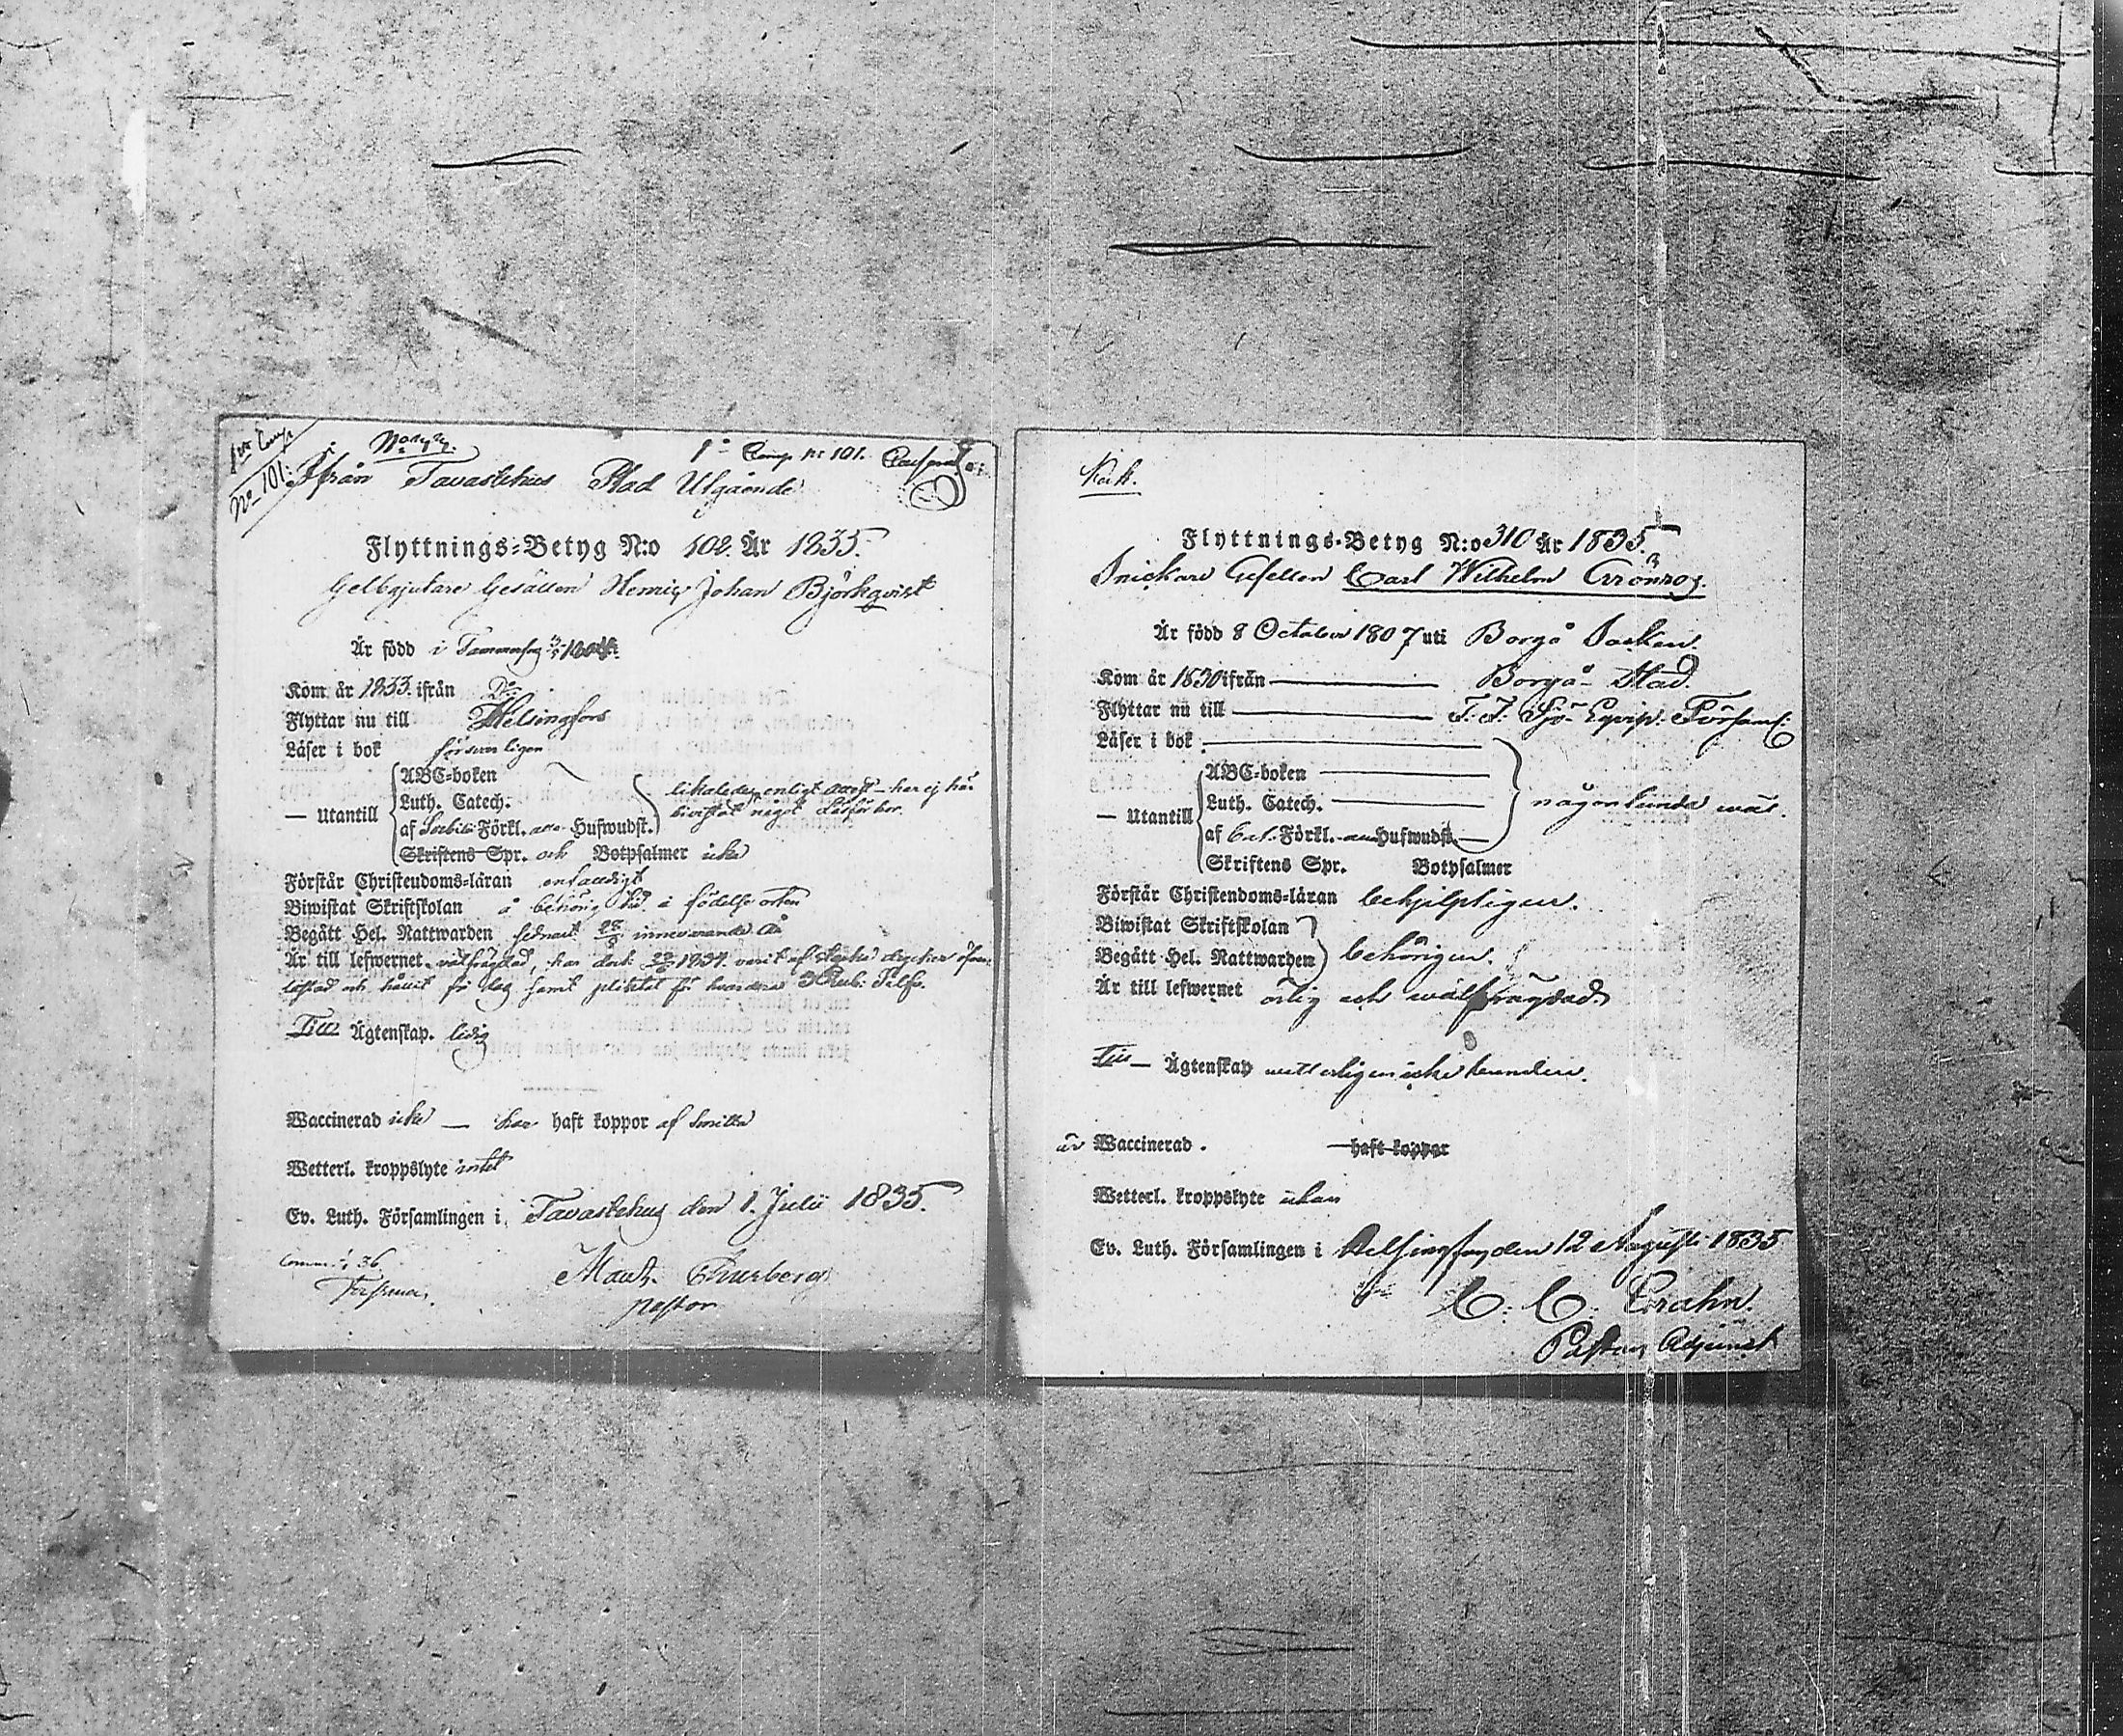 1sta Comp.
No 101.
1a Comp. No 101.
Ifrån Tavastehus Stad Utgående
Flyttnings-Betyg N:o 102. År 1835.
Gelbgjutare Gesällen Henric Johan Björkqvist
Är född i
Kom år 1833. ifrån Do
Flyttar nu till Helsingfors
Läser i bok försvarligen
ABC-boken
Luth. Catech.
— Utantill
af Förkl. Hufwudst.
likaledes enligt attest - har ej här
bivistat något Läsförhör.
Skriftens Spr. och Botpsalmer icke
Förstår Christendoms-läran enfaldigt
Biwistat Skriftskolan å behörig tid å födelse orten
Begått Hel. Nattwarden sednast innevarande År
Är till lefwernet välfrägdad, har dock 1834 varit af starka drycker
och samt pliktat för
Till Ägtenskap. ledig
Waccinerad icke — har haft koppor af smitta
Wetterl. kroppslyte intet
Ev. Luth. Församlingen i Tavastehus den 1. Julii 1835.
Thurberg
Pastor
Flyttnings-Betyg N:o 310 år 1835.
Snickare Gesellen Carl Wilhelm Grönroos.
Är född 8 October 1807 uti Borgå Socken.
Kom år 1830 ifrån Borgå Stad.
Flyttar nu till Sjö-Equip. Församl:
Läser i bok
ABC-boken
Luth. Catech.
— Utantill
af Förkl. Hufwudst.
någorlunda wäl.
Skriftens Spr. Botpsalmer
Förstår Christendoms-läran behjelpligen.
Biwistat Skriftskolan
Begått Hel. Nattwarden behörigen.
Är till lefwernet ärlig och wälfrägdad.
Till — Ägtenskap wetterligen icke bunden.
är Waccinerad. haft koppor
Wetterl. kroppslyte utan
Ev. Luth. Församlingen i Helsingfors den 12 Augusti 1835
C. C. Crahn.
Pastors Adjunct